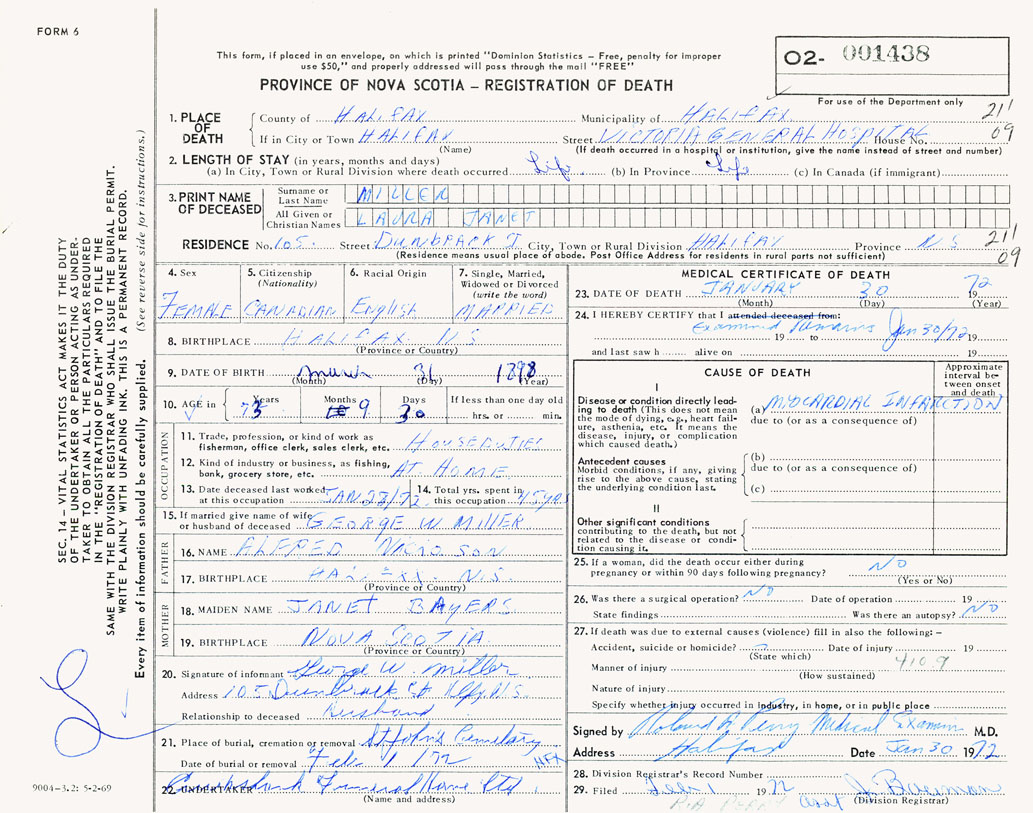 FORM 6
This form, if placed in an envelope, on which is printed "Dominion Statistics – Free, penalty for improper
use $50," and properly addressed will pass through the mail "FREE"
PROVINCE OF NOVA SCOTIA – REGISTRATION OF DEATH
02- 001438
For use of the Department only
1. PLACE OF DEATH
County of HALIFAX Municipality of HALIFAX 211
If in City or Town HALIFAX Street VICTORIA GENERAL HOSPITAL House No. 09
(Name) (If death occurred in a hospital or institution, give the name instead of street and number)
2. LENGTH OF STAY (in years, months and days)
(a) In City, Town or Rural Division where death occurred Life (b) In Province Life (c) In Canada (if immigrant)
3. PRINT NAME OF DECEASED
Surname or Last Name MILLER
All Given or Christian Names LAURA JANET
RESIDENCE No. 105 Street DUNBRACK City, Town or Rural Division HALIFAX Province N S 211
(Residence means usual place of abode. Post Office Address for residents in rural parts not sufficient) 09
4. Sex
FEMALE
5. Citizenship
(Nationality)
CANADIAN
6. Racial Origin
ENGLISH
7. Single, Married,
Widowed or Divorced
(write the word)
MARRIED
8. BIRTHPLACE HALIFAX N S
(Province or Country)
9. DATE OF BIRTH March 31 1898
(Month) (Day) (Year)
10. AGE in Years Months Days If less than one day old
73 9 30 hrs. or min.
OCCUPATION
11. Trade, profession, or kind of work as
fisherman, office clerk, sales clerk, etc. HOUSEDUTIES
12. Kind of industry or business, as fishing,
bank, grocery store, etc. AT HOME
13. Date deceased last worked
at this occupation JAN 28/72
14. Total yrs. spent in
this occupation 45 yrs
15. If married give name of wife
or husband of deceased GEORGE W MILLER
FATHER
16. NAME ALFRED
17. BIRTHPLACE HALIFAX N.S.
(Province or Country)
MOTHER
18. MAIDEN NAME JANET BAYERS
19. BIRTHPLACE NOVA SCOTIA
(Province or Country)
20. Signature of informant George W Miller
Address 105 Dunbrack St Hlfx N.S.
Relationship to deceased Husband
21. Place of burial, cremation or removal St Johns Cemetery
Date of burial or removal Feb 1 / 72 HFX
22. UNDERTAKER Cruikshank Funeral Home Ltd.
(Name and address)
MEDICAL CERTIFICATE OF DEATH
23. DATE OF DEATH JANUARY 30 19 72
(Month) (Day) (Year)
24. I HEREBY CERTIFY that I attended deceased from:
Examined remains 19 to Jan 30/72 19
and last saw h alive on 19
CAUSE OF DEATH
Approximate
interval be-
tween onset
and death
I
Disease or condition directly lead-
ing to death (This does not mean
the mode of dying, e.g., heart fail-
ure, asthenia, etc. It means the
disease, injury, or complication
which caused death.)
(a) MYOCARDIAL INFARCTION
due to (or as a consequence of)
Antecedent causes
Morbid conditions, if any, giving
rise to the above cause, stating
the underlying condition last.
(b)
due to (or as a consequence of)
(c)
II
Other significant conditions
contributing to the death, but not
related to the disease or condi-
tion causing it.
25. If a woman, did the death occur either during
pregnancy or within 90 days following pregnancy? NO
(Yes or No)
26. Was there a surgical operation? NO Date of operation 19
State findings Was there an autopsy? NO
27. If death was due to external causes (violence) fill in also the following: –
Accident, suicide or homicide? Date of injury 19
(State which)
Manner of injury 4109
(How sustained)
Nature of injury
Specify whether injury occurred in industry, in home, or in public place
Signed by Roland A Perry Medical Examiner M.D.
Address Halifax Date Jan 30 1972
28. Division Registrar's Record Number
29. Filed Feb 1 1972 J. Bauman
R.A. PERRY Asst (Division Registrar)
SEC. 14 – VITAL STATISTICS ACT MAKES IT THE DUTY
OF THE UNDERTAKER OR PERSON ACTING AS UNDER-
TAKER TO OBTAIN ALL THE PARTICULARS REQUIRED
IN THE "REGISTRATION OF DEATH" AND TO FILE THE
SAME WITH THE DIVISION REGISTRAR WHO SHALL ISSUE THE BURIAL PERMIT.
WRITE PLAINLY WITH UNFADING INK. THIS IS A PERMANENT RECORD.
Every item of information should be carefully supplied. (See reverse side for instructions.)
9004-3.2: 5-2-69